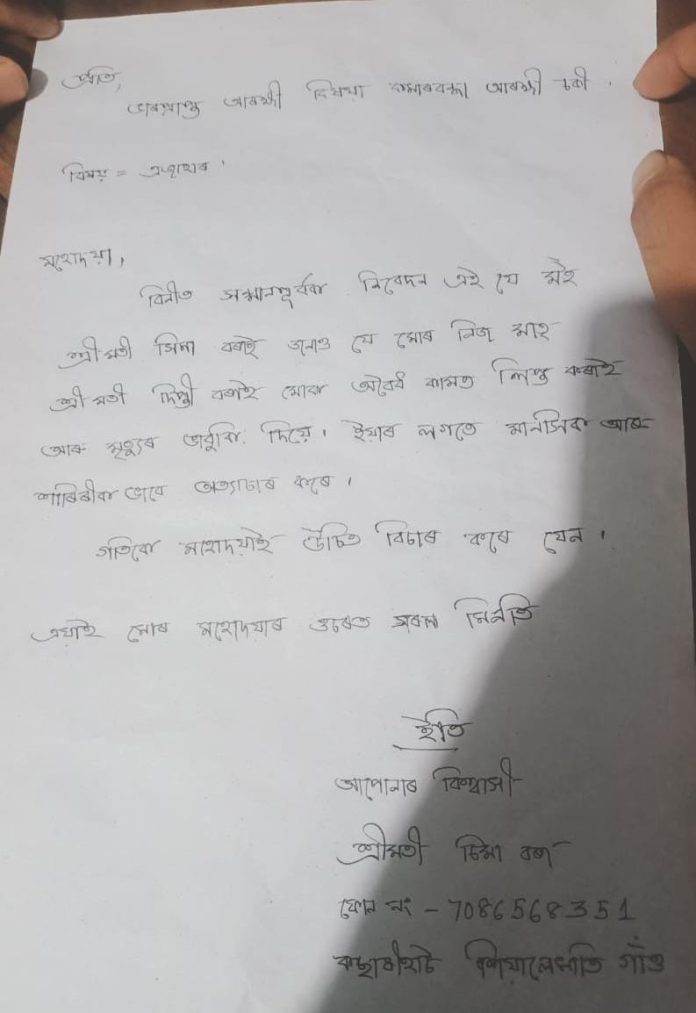 প্ৰতি,
ভাৰপ্ৰাপ্ত আৰক্ষী বিষয়া কমাৰবন্ধা আৰক্ষী চকী ।
বিষয় = এজাহাৰ ।
মহোদয়া,
বিনীত সন্মানপূৰ্বক নিবেদন এই যে মই
শ্ৰীমতী বৰাই জনাও যে মোৰ নিজ মাহ
শ্ৰীমতী দিপ্তী বৰাই মোক অবৈধ কামত লিপ্ত কৰাই
আৰু মৃত্যুৰ ভাবুকি দিয়ে । ইয়াৰ লগতে মানসিক আৰু
শাৰিৰীক ভাবে অত্যাচাৰ কৰে ।
গতিকে মহোদয়াই উচিত বিচাৰ কৰে যেন ।
এয়াই মোৰ মহোদয়াৰ ওচৰত সৰল মিনতি
ইতি
আপোনাৰ বিশ্বাসী
শ্ৰীমতী বৰা
ফোন নং - 7086568351
কছাৰীহাট গাঁও